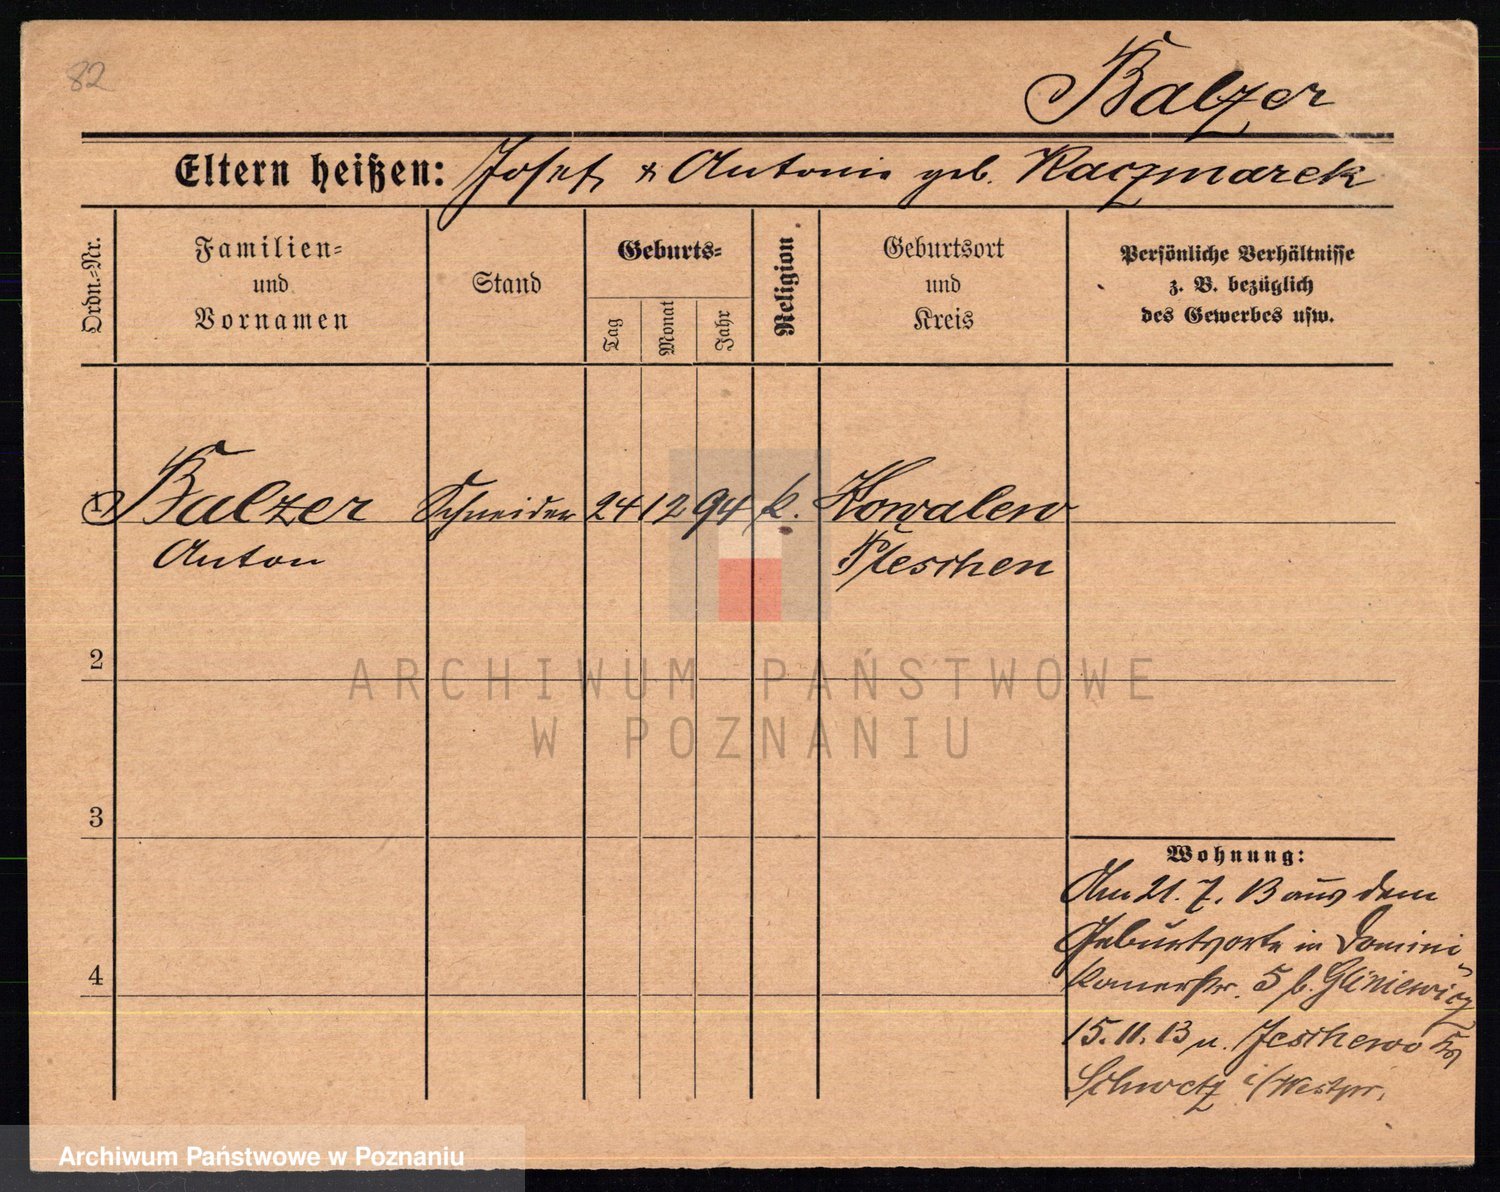 82
Balzer
Eltern heißen: Josef & Antonie geb. Kaczmarek
Ordn.-Nr.
Familien-
und
Vornamen
Stand
Geburts-
Tag
Monat
Jahr
Religion
Geburtsort
und
Kreis
Persönliche Verhältnisse
z. B. bezüglich
des Gewerbes usw.
1 Balzer Schneider 24 12 94 k. Kowalew
Anton Pleschen
2
3
4
Wohnung:
Am 21. 7. 13 aus dem
Geburtsorte in Domini-
kanerstr. 5 b. Gliniewicz
15. 11. 13 n. Jeschewo Kr
Schwetz i/Westpr.
ARCHIWUM PAŃSTWOWE
W POZNANIU
Archiwum Państwowe w Poznaniu